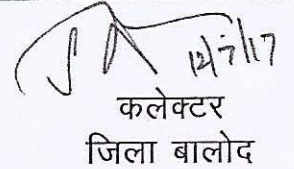 12/7/17
कलेक्टर
जिला बालोद